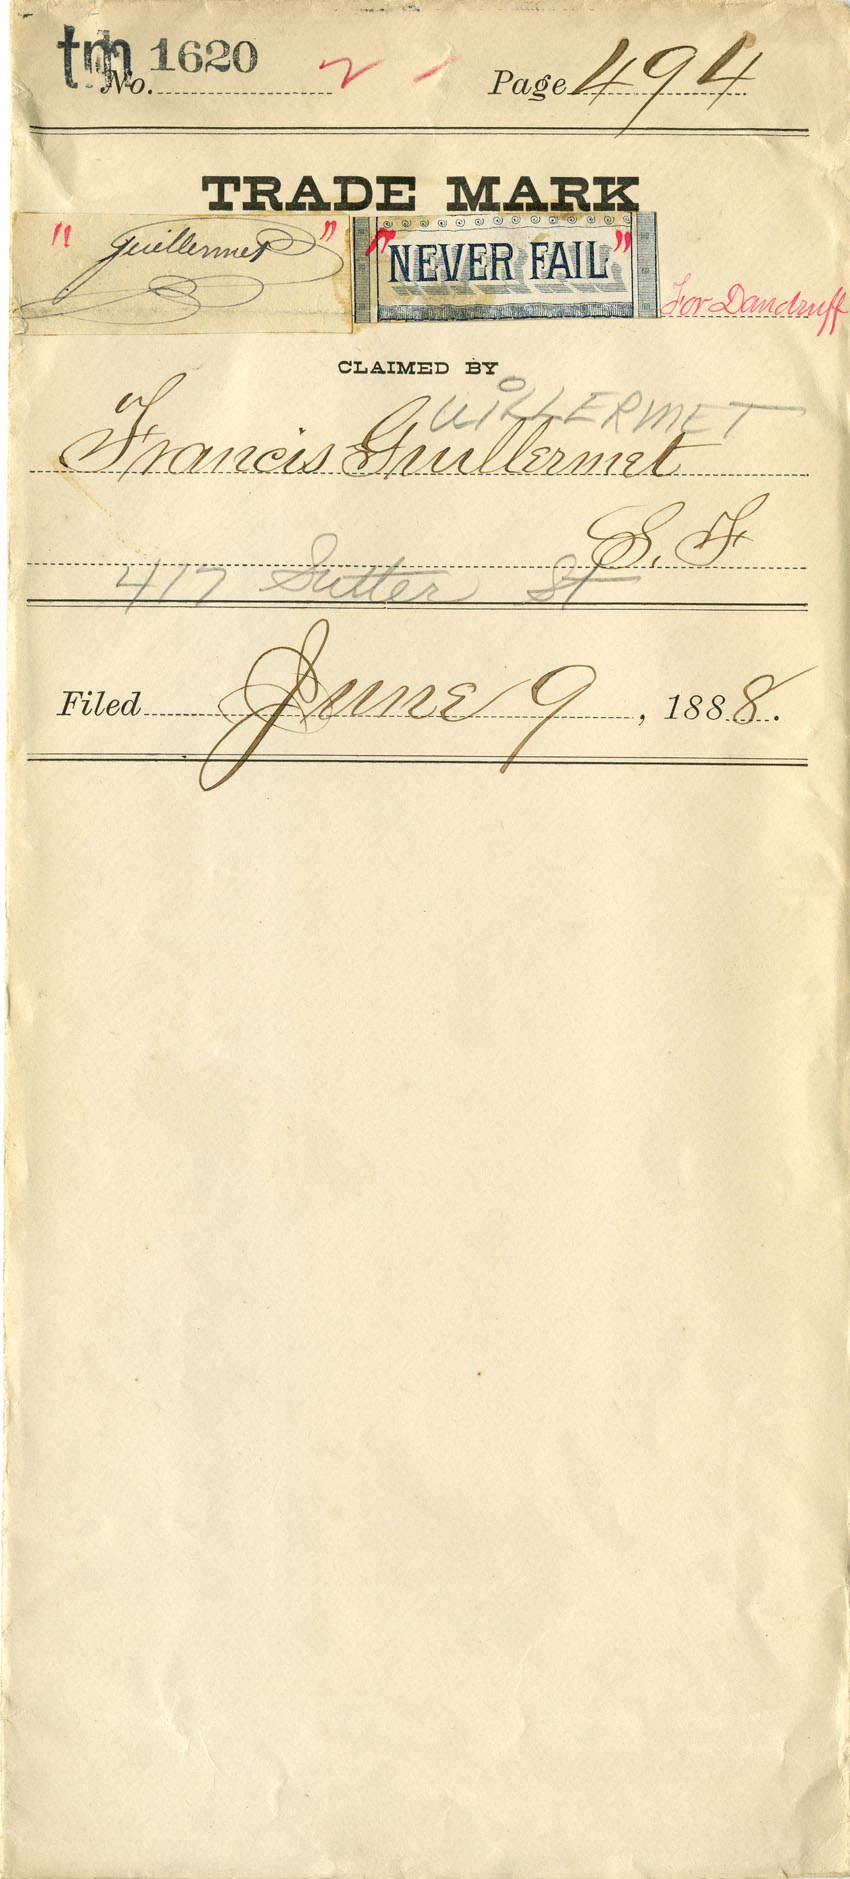 tm 1620
No. Page 494
TRADE MARK
" Guillermet " "NEVER FAIL" For Dandruff
CLAIMED BY
UILLERMET
Francis Guillermet
S. F
417 Sutter St
Filed June 9, 1888.